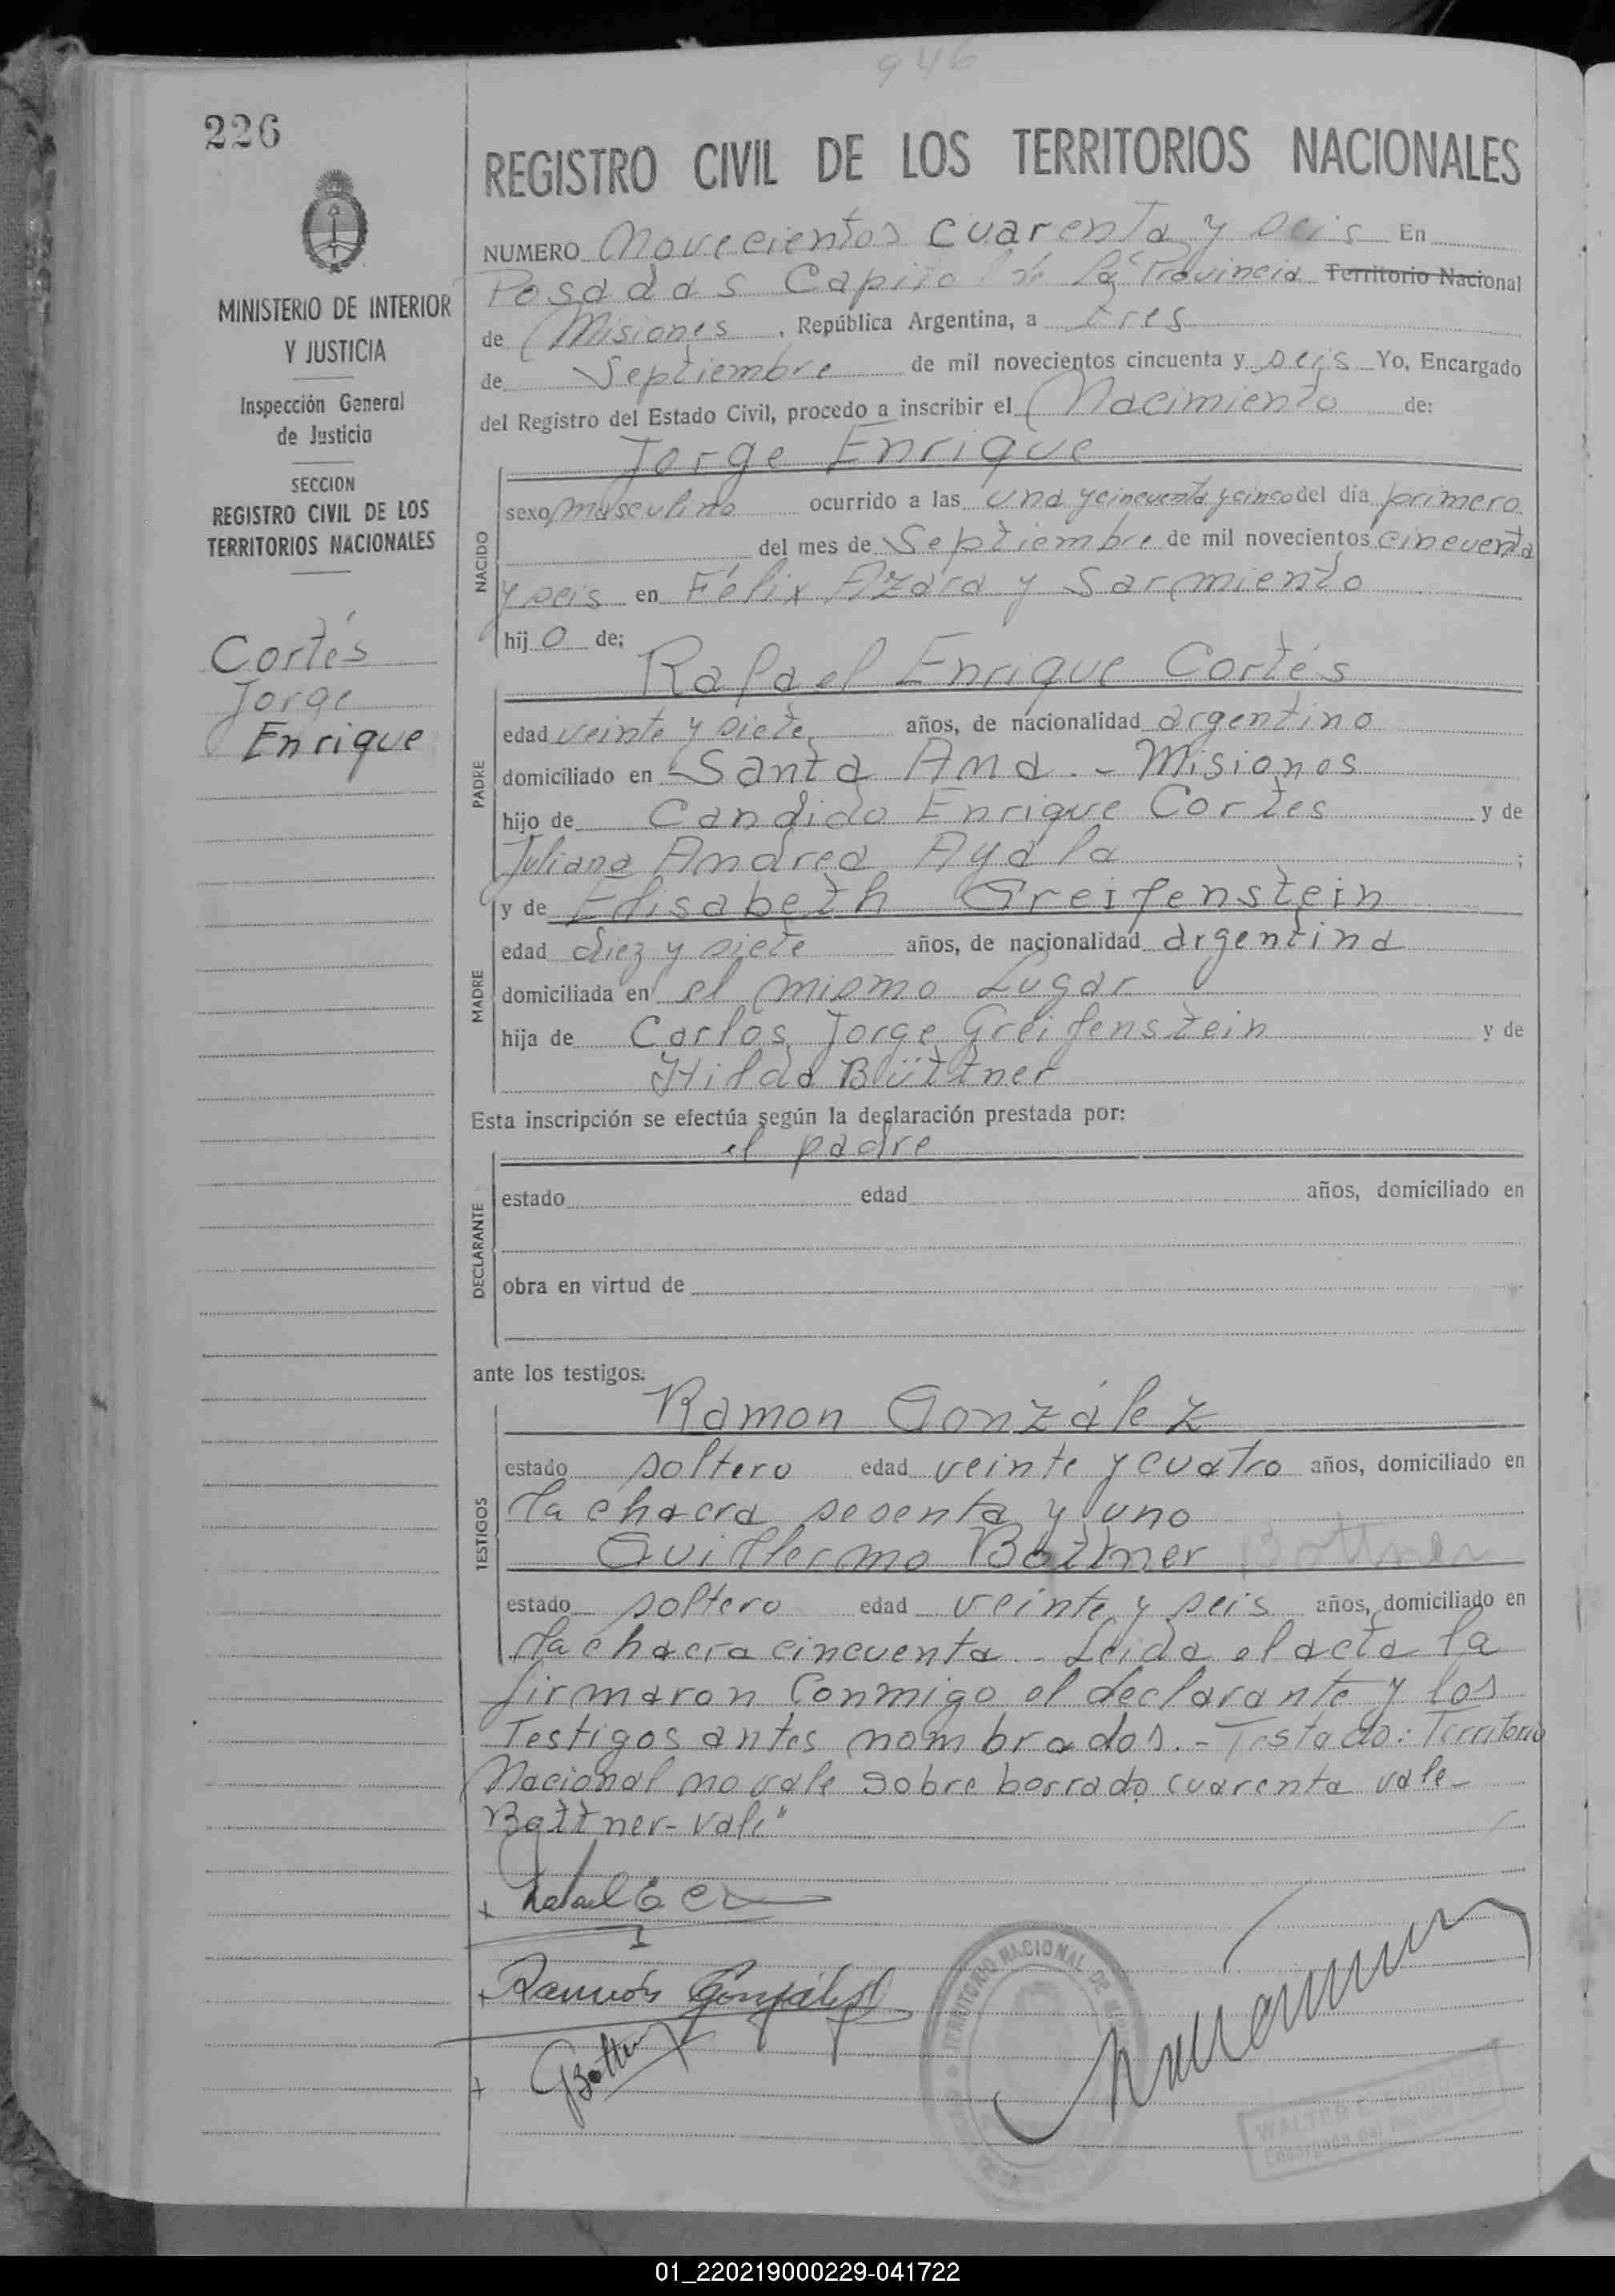 946
226
REGISTRO CIVIL DE LOS TERRITORIOS NACIONALES
MINISTERIO DE INTERIOR
Y JUSTICIA
Inspección General
de Justicia
SECCION
REGISTRO CIVIL DE LOS
TERRITORIOS NACIONALES
Cortés
Jorge
Enrique
NUMERO Novecientos cuarenta y seis En
Posadas Capital de la Provincia Territorio Nacional
de Misiones , República Argentina, a tres
de Septiembre de mil novecientos cincuenta y seis Yo, Encargado
del Registro del Estado Civil, procedo a inscribir el Nacimiento de:
Jorge Enrique
NACIDO
sexo masculino ocurrido a las una y cincuenta y cinco del día primero
del mes de Septiembre de mil novecientos cincuenta
y seis en Félix Azara y Sarmiento
hij o de;
Rafael Enrique Cortés
PADRE
edad veinte y siete años, de nacionalidad argentino
domiciliado en Santa Ana. - Misiones
hijo de Candido Enrique Cortes y de
Juliana Andrea Ayala ;
y de Elisabeth Greifenstein
MADRE
edad diez y siete años, de nacionalidad argentina
domiciliada en el mismo Lugar
hija de Carlos Jorge Greifenstein y de
Hilda Büttner
Esta inscripción se efectúa según la declaración prestada por:
el padre
DECLARANTE
estado edad años, domiciliado en
obra en virtud de
ante los testigos:
Ramon González
TESTIGOS
estado soltero edad veinte y cuatro años, domiciliado en
la chacra sesenta y uno
Guillermo Bottner Bottner
estado soltero edad veinte y seis años, domiciliado en
la chacra cincuenta.- Leida el acta la
firmaron conmigo el declarante y los
Testigos antes nombrados.- Testado: Territorio
Nacional no vale sobre borrado cuarenta vale-
Bottner- vale"
Rafael E
Ramón González
GBottner
TERRITORIO NACIONAL DE
WALTER
Encargado del Registro
01_220219000229-041722